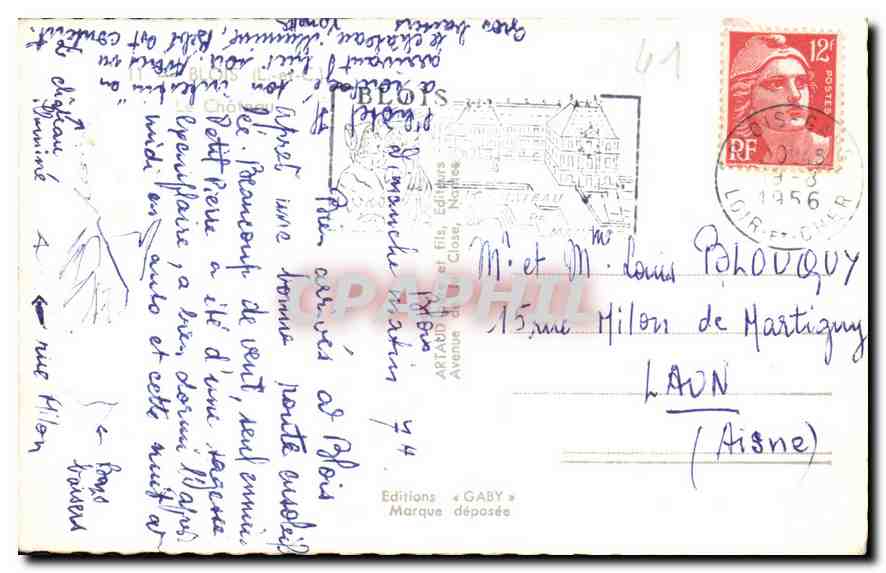 Blois
Dimanche matin 7 h.
Bien arrivés à Blois
après une bonne route ensoleil
lée. Beaucoup de vent, seul ennui.
Petit Pierre a été d'une sagesse
exemplaire, a bien dormi l'après
midi en auto et cette nuit à
l'hôtel
le château illuminé, Bébé est content.
Gros baisers
Le château
illuminé
← rue Milon
← Bons
baisers
11 - BLOIS (L.-et-C.)
Le Château
41
BLOIS
12F
POSTES
RF
1956
LOIR-ET-CHER
Mr et Mme Louis BLOUQUY
15 rue Milon de Martigny
LAON
(Aisne)
ARTAUD et fils, Editeurs
Avenue de la Close, Nantes
Editions « GABY »
Marque déposée
CPAPHIL